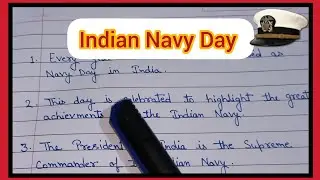 Indian Navy Day
1. Every as
Navy Day in India.
2. This day is celebrated to highlight the great
achievments the Indian Navy.
3. The President India is the Supreme
Commander of Indian Navy.